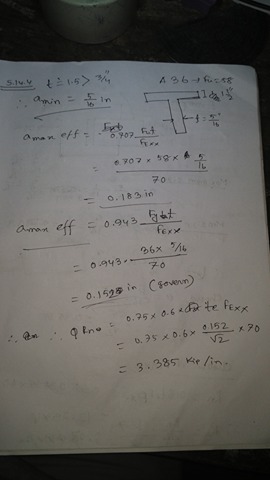 5.14.4 t = 1.5 > 3/4"
A 36 → Fu = 58
1 1/2"
∴ amin = 5/16 in
t = 5/16"
amax eff = 0.707 Fut / FExx
= 0.707 × 58 × 5/16 / 70
= 0.183 in
amax eff = 0.943 Fyt / FExx
= 0.943 × 36 × 5/16 / 70
= 0.152 in (govern)
∴ ϕRn = 0.75 × 0.6 × te FExx
= 0.75 × 0.6 × 0.152/√2 × 70
= 3.385 Kip/in.